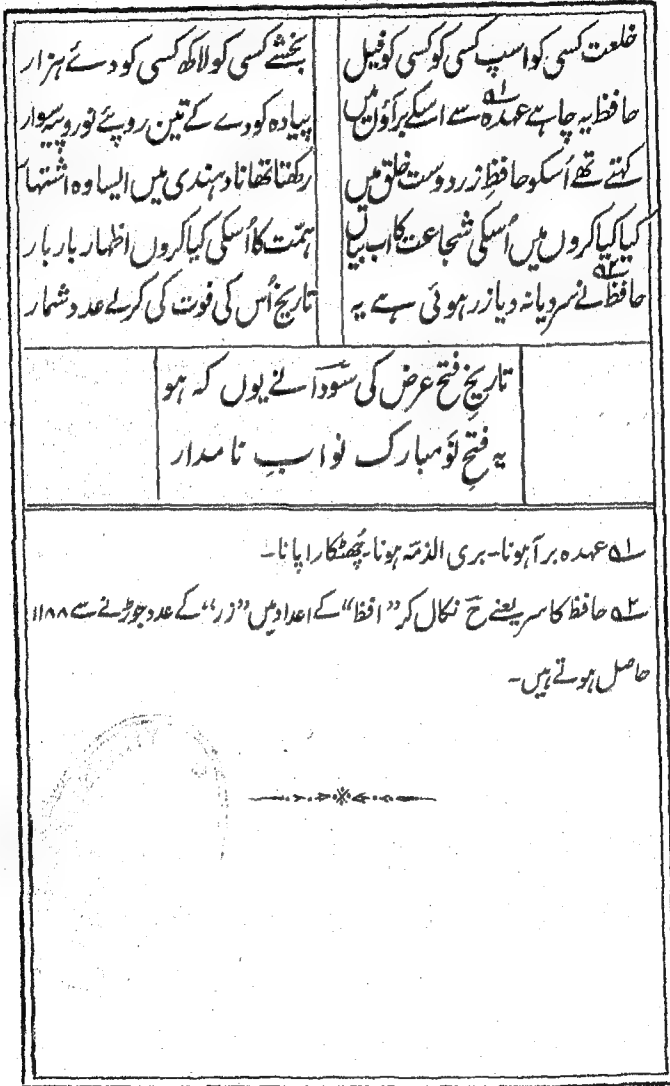 خلعت کسی کو اسپ کسی کو کسی کو فیل بخشے کسی کو لاکھ کسی کو دے ہزار
حافظ یہ چاہے عہدہ ۱؎ سے اسکے برآؤں میں پیادہ کو دے کے تین روپئے نو روپیہ سوار
کہتے تھے اُسکو حافظِ زر دوست خلق میں رکھتا تھا نادہندی میں ایسا وہ اشتہار
کیا کیا کروں میں اُسکی شجاعت کا اب بیاں ہمّت کا اُسکی کیا کروں اظہار بار بار
حافظ ۲؎ نے سر دیا نہ دیا زر ہوئی ہے یہ تاریخ اُس کی فوت کی کر لے عدد شمار
تاریخِ فتح عرض کی سودؔا نے یوں کہ ہو
یہ فتحِ نَو مبارک نوابِ نامدار
۱؎ عہدہ برآ ہونا۔ بری الذمّہ ہونا۔ چُھٹکارا پانا۔
۲؎ حافظ کا سر یعنے ح نکال کر "افظ" کے اعداد میں "زر" کے عدد جوڑنے سے ۱۱۸۸
حاصل ہوتے ہیں۔